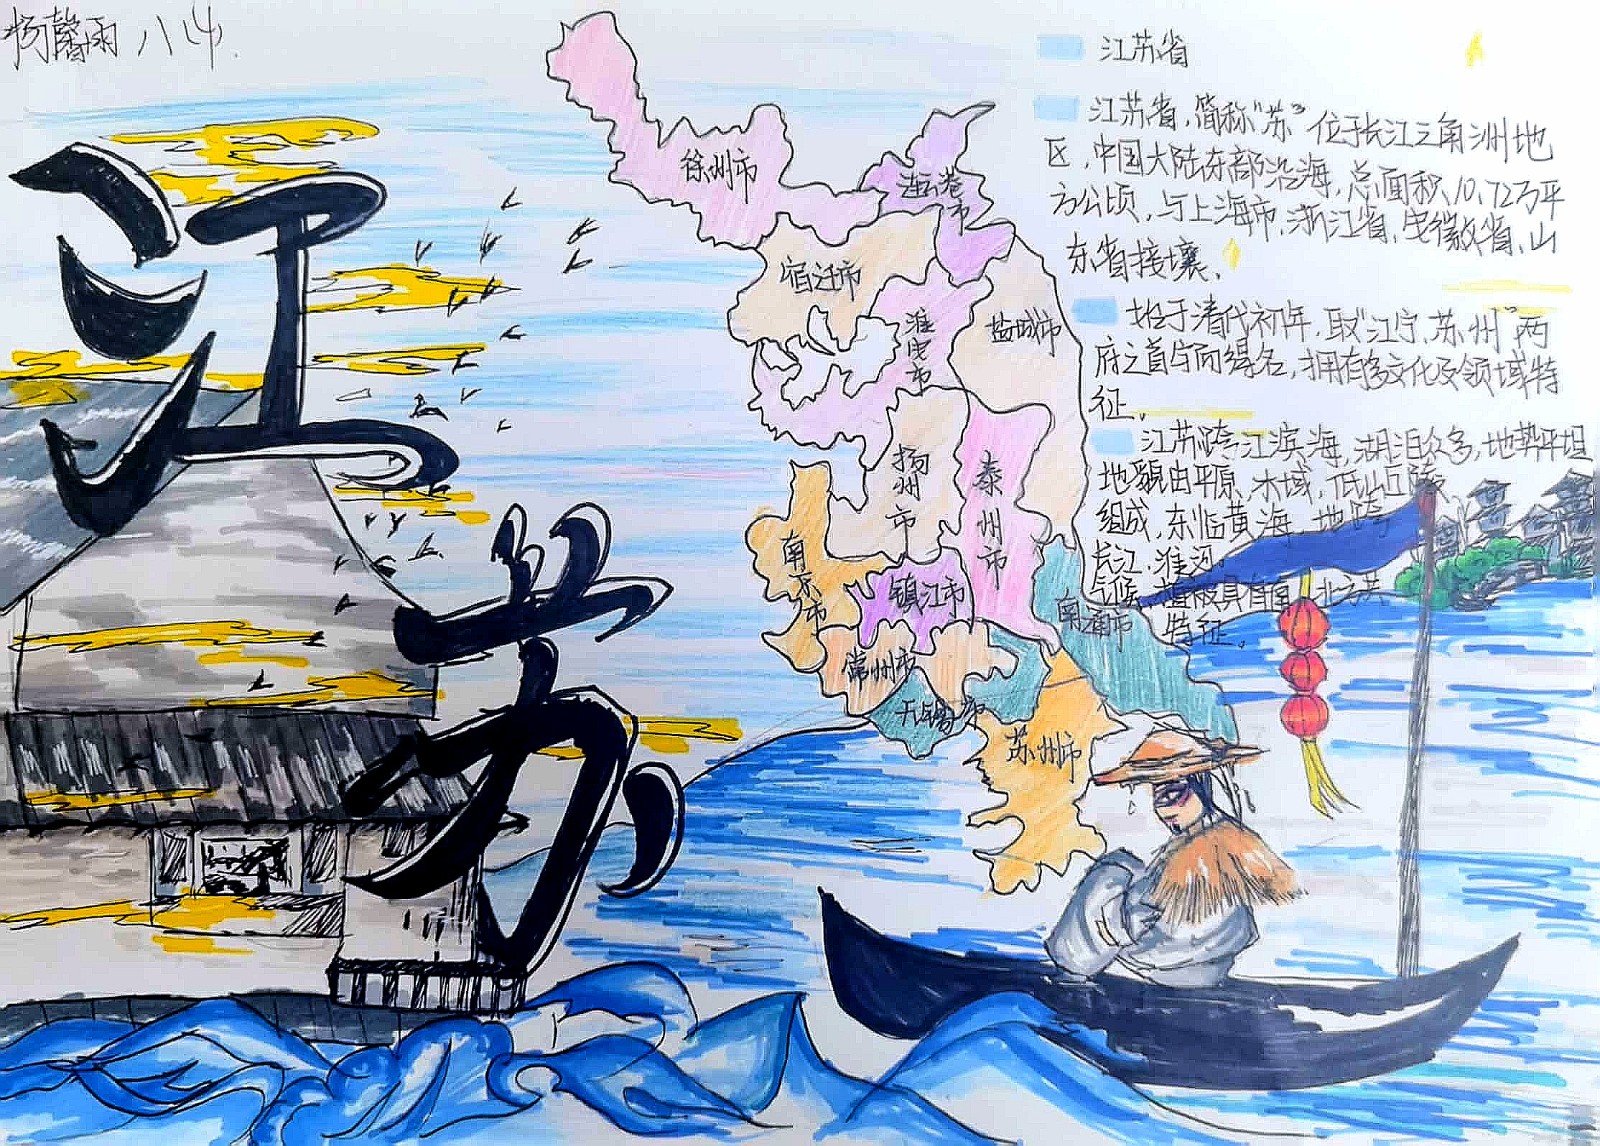 杨馨雨 八(4)
江苏
徐州市
连云港市
宿迁市
淮安市
盐城市
扬州市
泰州市
南京市
镇江市
南通市
常州市
无锡市
苏州市
江苏省
江苏省,简称“苏”位于长江三角洲地
区,中国大陆东部沿海,总面积10.72万平
方公顷,与上海市、浙江省、安徽省、山
东省接壤、
始于清代初年,取“江宁、苏州”两
府之首字而得名,拥有多文化及领域特
征。
江苏跨江滨海,湖泊众多,地势平坦
地貌由平原、水域,低山丘陵
组成,东临黄海、地跨
长江、淮河。
气候、植被具有南、北方共
特征。